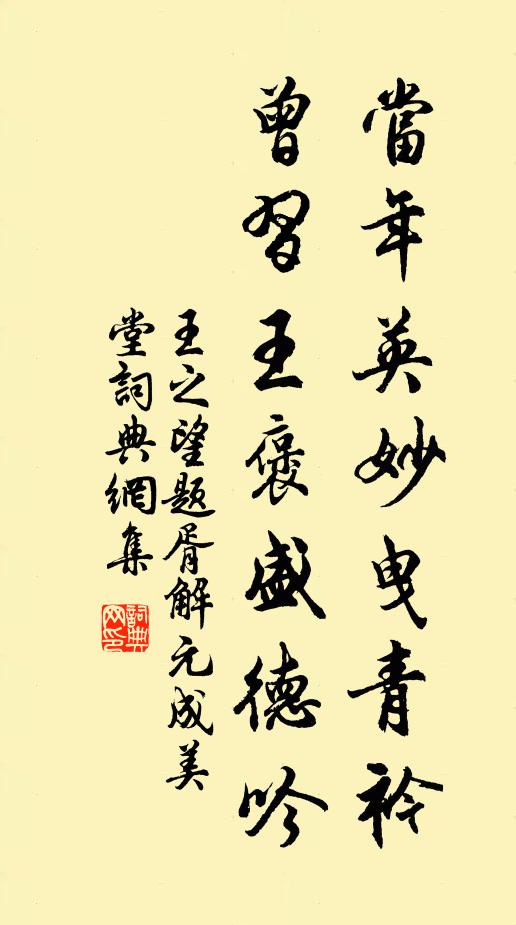 當年英妙曳青衿
曾習王褒盛德吟
王之望題胥解元成美
堂詞典網集
詞典网印